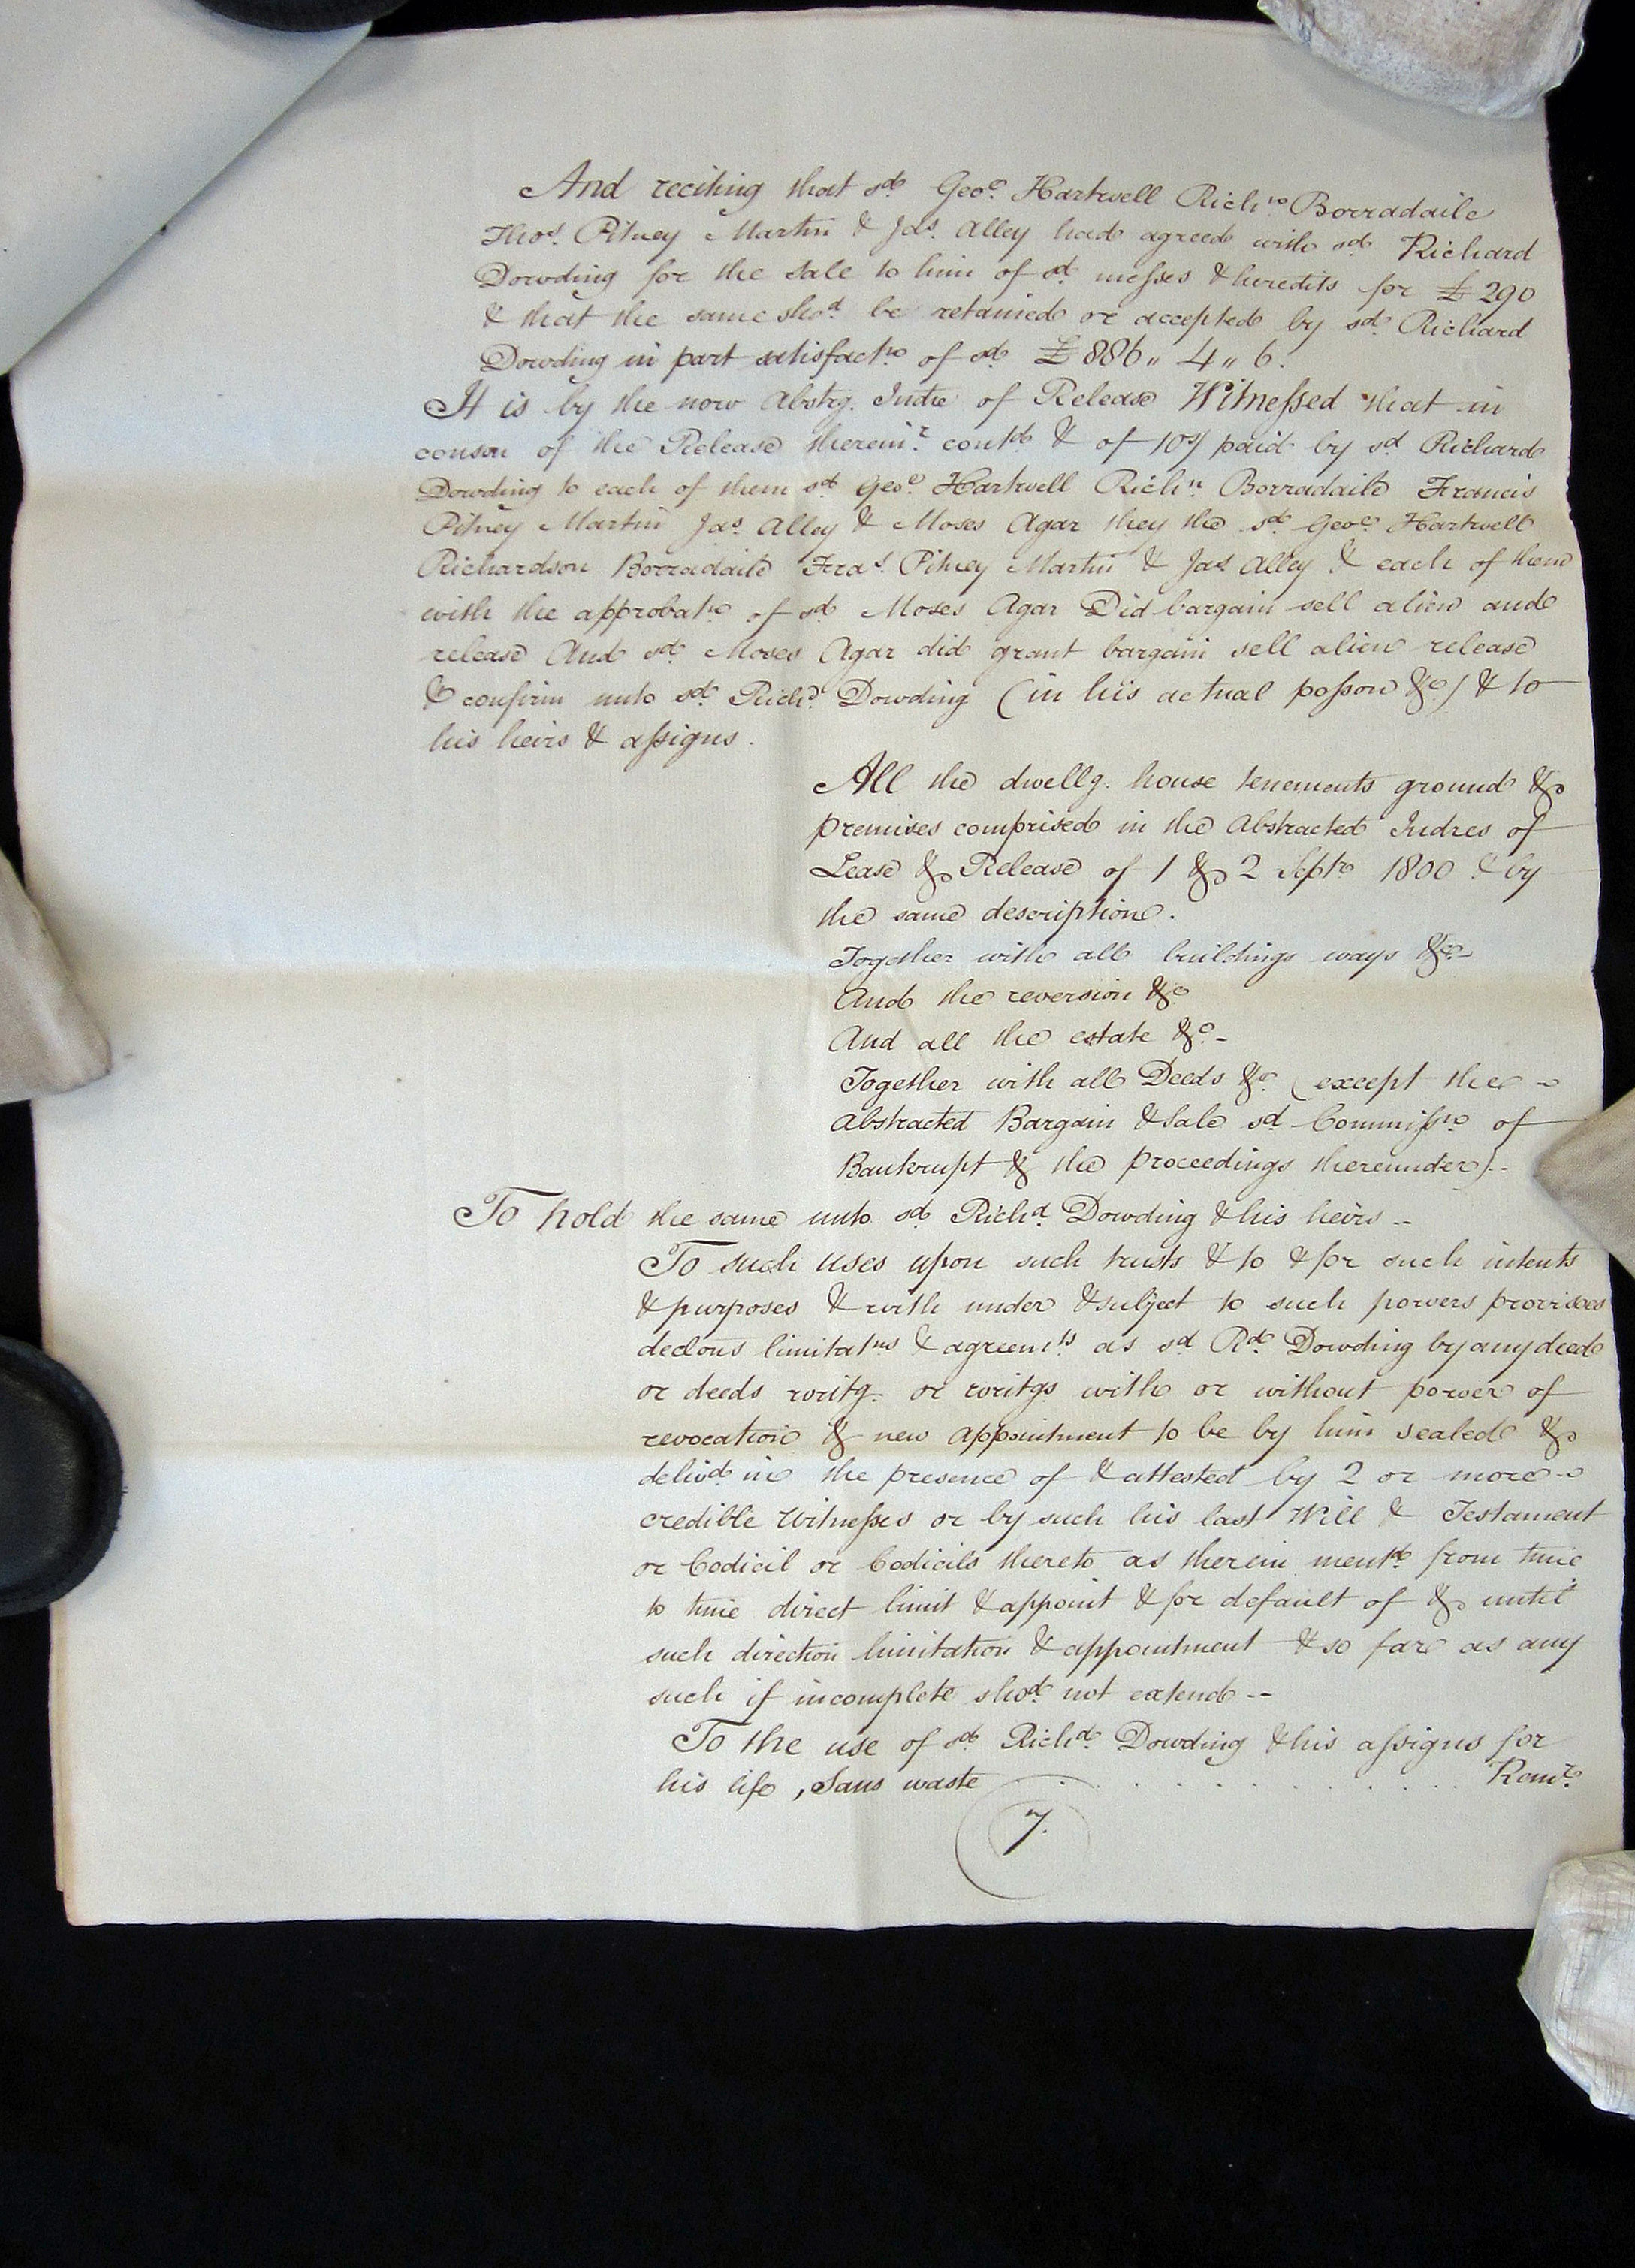 And reciting that sd. Geoe. Hartwell Richn. Borradaile
Thos. Pitney Martin & Jas. Alley had agreed with sd. Richard
Dowding for the sale to him of sd. messes & heredits for £290
& that the same shod. be retained or accepted by sd. Richard
Dowding in part satisfactn. of sd. £886 „ 4 „ 6.
It is by the now Abstrg. Indre of Release Witnessed that in
conson of the Release therein contd. & of 10s/ paid by sd. Richard
Dowding to each of them sd. Geoe. Hartwell Richn. Borradaile Francis
Pitney Martin Jas. Alley & Moses Agar they the sd. Geoe. Hartwell
Richardson Borradaile Fras. Pitney Martin & Jas. Alley & each of them
with the approbatn. of sd. Moses Agar Did bargain sell alien and
release And sd. Moses Agar did grant bargain sell alien release
& confirm unto sd. Richd. Dowding (in his actual posson &c) & to
his heirs & assigns.
All the dwellg. house tenements ground &
premises comprised in the Abstracted Indres of
Lease & Release of 1 & 2 Septr. 1800 & by
the same description.
Together with all buildings ways &c.
And the reversion &c
And all the estate &c. -
Together with all Deeds &c. (except the
Abstracted Bargain & Sale sd. Commissn. of
Bankrupt & the proceedings thereunder) -
To hold the same unto sd. Richd. Dowding & his heirs --
To such uses upon such trusts & to & for such intents
& purposes & with under & subject to such powers provisoes
declons limitatns & agreemts. as sd. Rd. Dowding by any deed
or deeds writg. or writgs with or without power of
revocation & new appointment to be by him sealed &
delivd. in the presence of & attested by 2 or more
credible Witnesses or by such his last Will & Testament
or Codicil or Codicils thereto as therein mentd. from time
to time direct limit & appoint & for default of & until
such direction limitation & appointment & so far as any
such if incomplete shod. not extend --
To the use of sd. Richd. Dowding & his assigns for
his life, Sans waste . . . . . . . . . . . . Remr.
7.